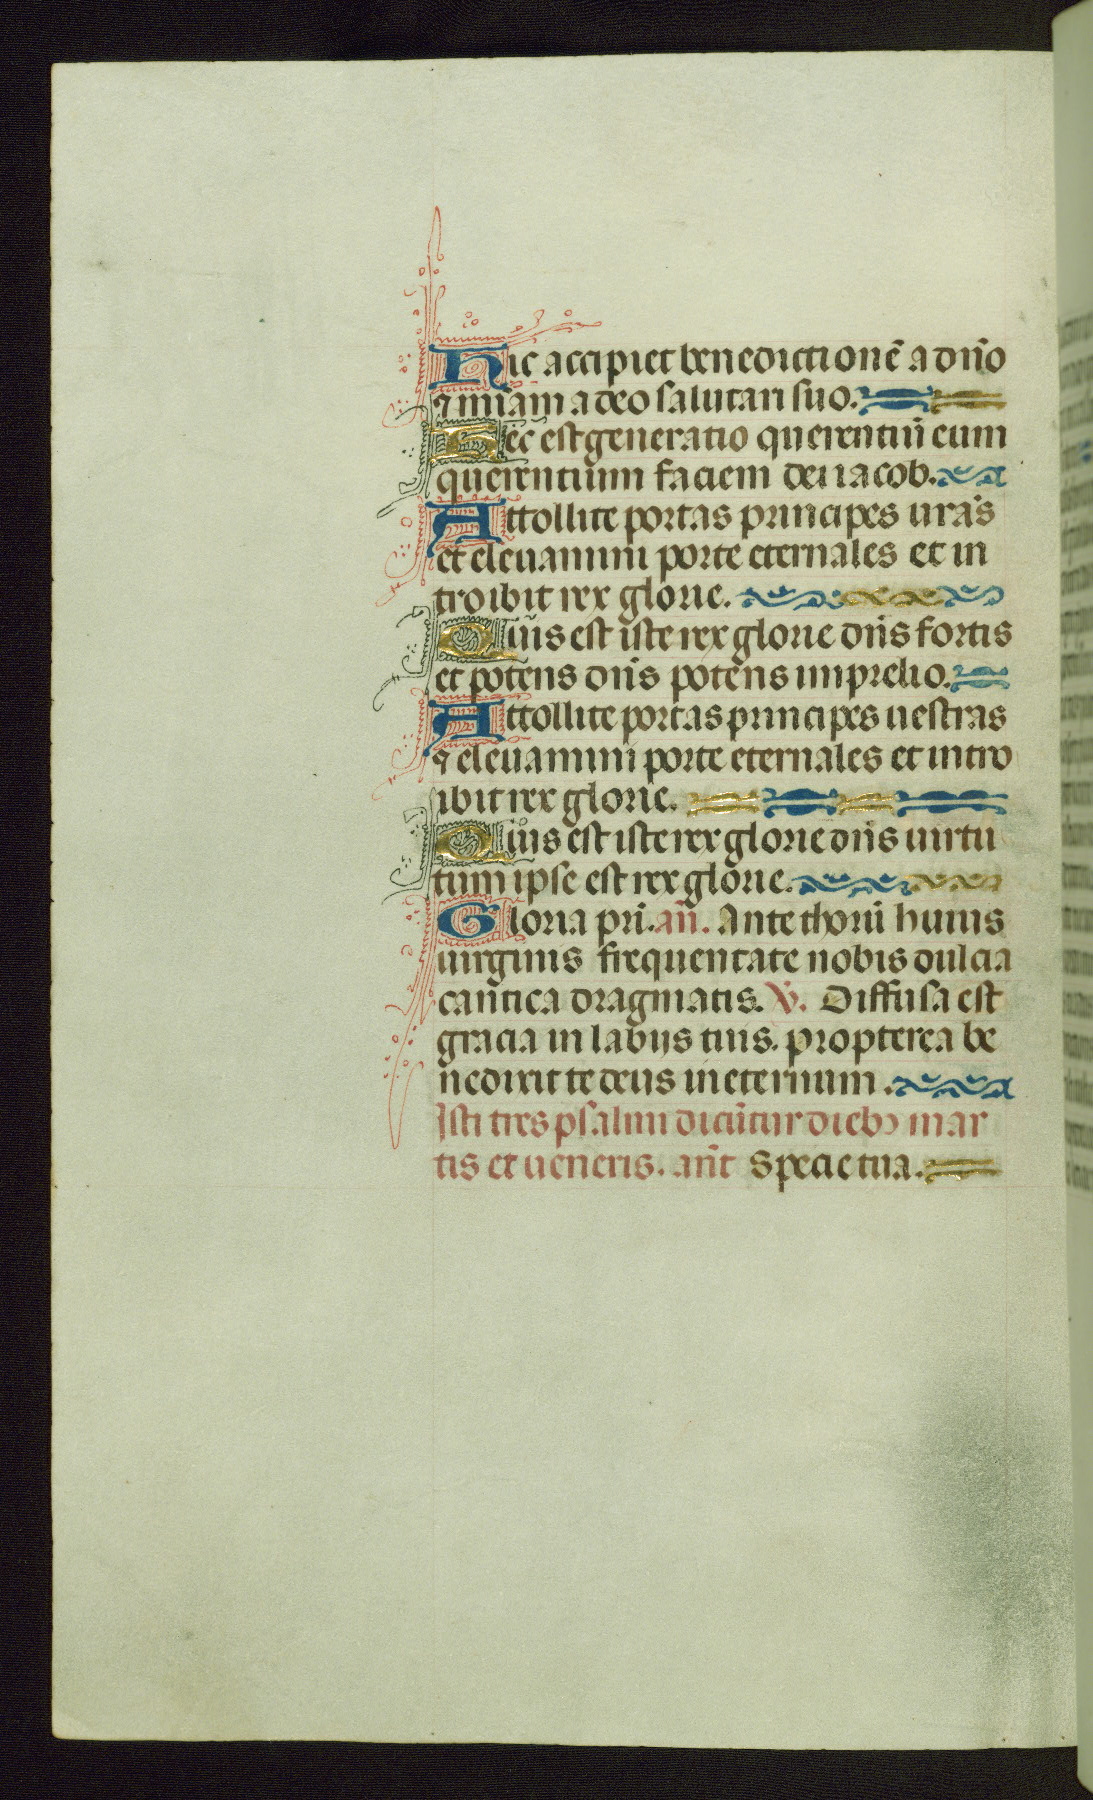 Hic accipiet benedictionē a dn̄o
⁊ mīam a deo salutari suo.
Hec est generatio querentiū eum
querentium faciem dei iacob.
Attollite portas principes ur̄as
et eleuamini porte eternales et in
troibit rex glorie.
Quis est iste rex glorie dn̄s fortis
et potens dn̄s potens in prelio.
Attollite portas principes uestras
⁊ eleuamini porte eternales et intro
ibit rex glorie.
Quis est iste rex glorie dn̄s uirtu
tum ipse est rex glorie.
Gloria pri. an̄. Ante thorū huius
uirginis frequentate nobis dulcia
cantica dragmatis. ℣. Diffusa est
gracia in labijs tuis. propterea be
nedixit te deus in eternum.
Isti tres psalmi dicūtur diebꝫ mar
tis et ueneris. an̄t Specie tua.